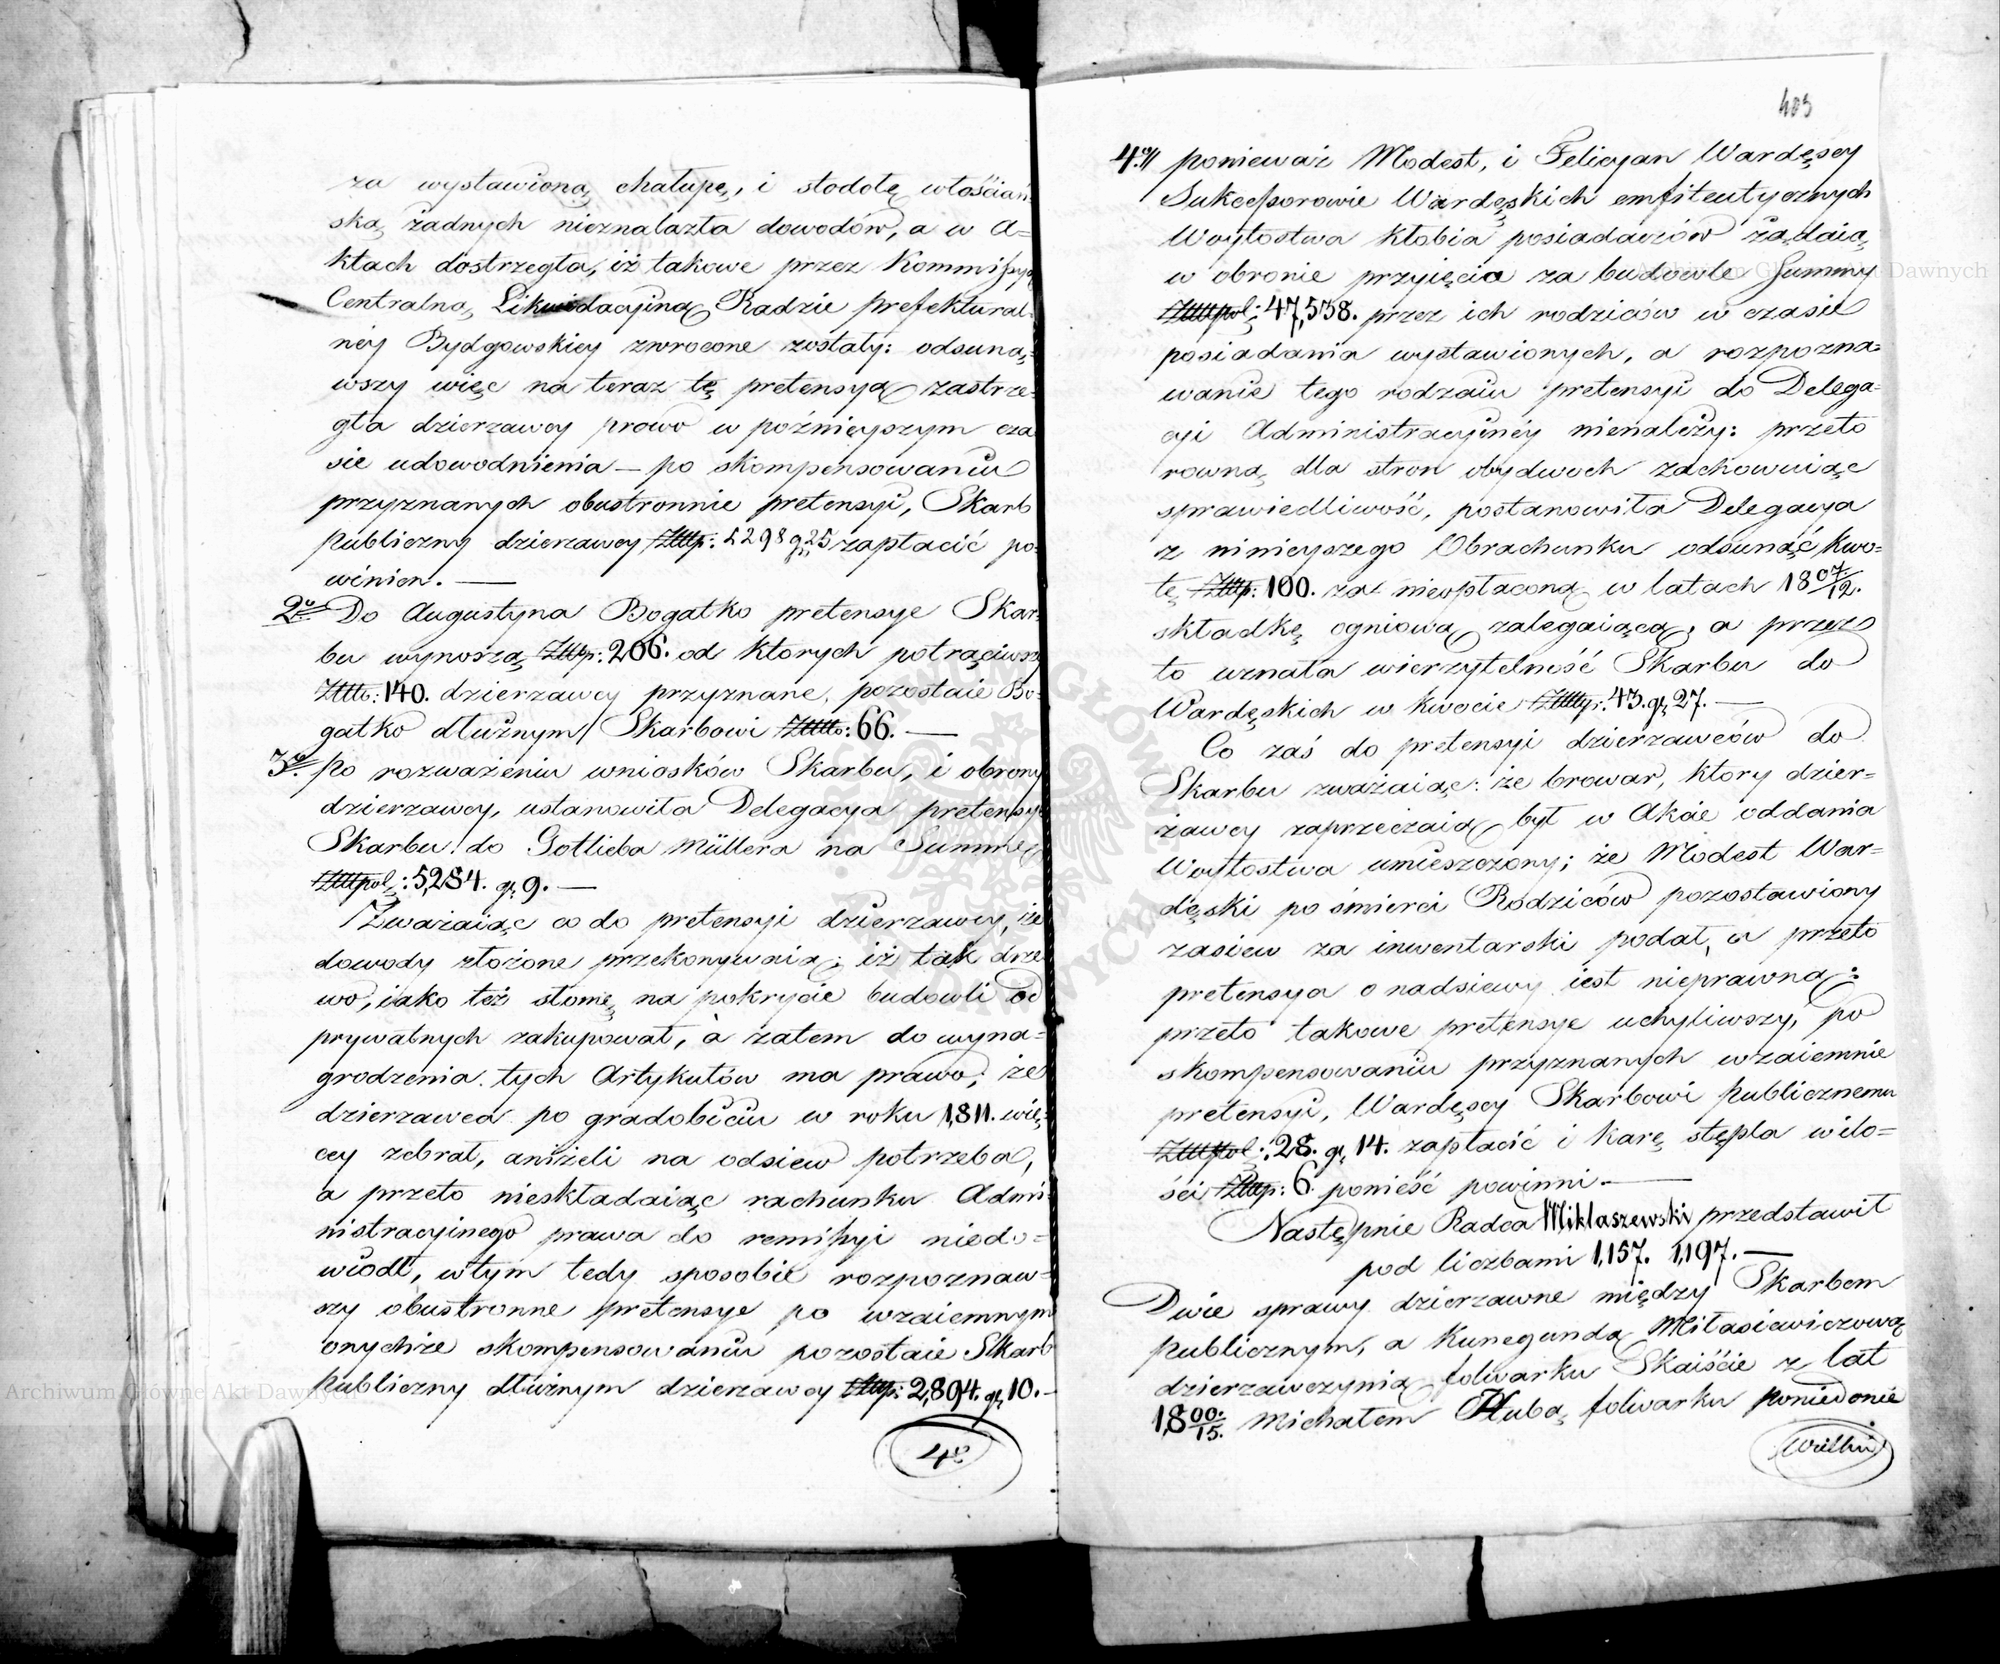 za wystawioną chałupę, i stodołę włościań=
ską żadnych nieznalazła dowodów, a w A=
ktach dostrzegła, iż takowe przez Kommissyą
Centralną Likwidacyjną Radzie prefektural=
néy Bydgowskiey zwrocone zostały: odsuną=
wszy więc na teraz tę pretensyą zastrze=
gła dzierzawcy prawo w poźnieyszym cza
sie udowodnienia – po skompensowaniu
przyznanych obustronnie pretensyi, Skarb
publiczny dzierzawcy Złtp: 5298 gr 25 zapłacić po=
winien. —
2o Do Augustyna Bogatko pretensye Skar=
bu wynoszą Złtp: 206. od ktorych potrąciwszy
Złtp: 140. dzierzawcy przyznane, pozostaie Bo=
gatko dłużnym Skarbowi Złtp: 66. —
3o po rozważeniu wniosków Skarbu, i obrony
dzierzawcy, ustanowiła Delegacya pretensye
Skarbu do Gotlieba Müllera na Summę
Złtpol: 5,284. gr 9. —
Zważaiąc co do pretensyi dzierzawcy, iże
dowody złożone przekonywaią; iż tak drze
wo, iako też słomę na pokrycie budowli od
prywatnych zakupował, à zatem do wyna=
grodzenia tych Artykułów ma prawo; że
dzierzawca po gradobiciu w roku 1811. wię=
cey zebrał, aniżeli na odsiew potrzeba,
a przeto nieskładaiąc rachunku Admi=
nistracyjnego prawa do remissyi niedo=
wiódł, w tym tedy sposobie rozpoznaw=
szy obustronne pretensye po wzaiemnym
onychże skompensowaniu pozostaie Skarb
publiczny dłużnym dzierzawcy Złtp: 2,894. gr 10. –
4o
403
4o ponieważ Modest, i Felicyan Wardęscy
Sukcessorowie Wardęskich emfiteutycznych
Woytostwa Kłobia posiadaczów żądaią
w obronie przyięcia za budowle Summy
Złtpol: 47,538. przez ich rodziców w czasie
posiadania wystawionych, a rozpozna=
wanie tego rodzaiu pretensyi do Delega=
cyi Administracyjnéy nienależy: przeto
rowną dla stron obydwoch zachowuiąc
sprawiedliwość, postanowiła Delegacya
z ninieyszego Obrachunku odsunąć kwo=
tę Złtp: 100. za nieopłaconą w latach 1807/12.
składkę ogniową zalegaiącą, a przez
to uznała wierzytelność Skarbu do
Wardęskich w kwocie Złtp: 43. gr 27. —
Co zaś do pretensyi dzierzawców do
Skarbu zważaiąc: że browar, ktory dzier=
żawcy zaprzeczaią był w Akcie oddania
Woytostwa umieszczony; że Modest War=
dęski po śmierci Rodziców pozostawiony
zasiew za inwentarski podał, a przeto
pretensya o nadsiewy iest nieprawną:
przeto takowe pretensye uchyliwszy, po
skompensowaniu przyznanych wzaiemnie
pretensyi, Wardęscy Skarbowi publicznemu
Złtpol: 28. gr 14. zapłacić i karę stępla w ilo=
ści Złtp: 6 ponieść powinni. —
Następnie Radca Miklaszewski przedstawił
pod liczbami 1,157. 1,197. —
Dwie sprawy dzierzawne między Skarbem
publicznym, a Kunegundą Miłasiewiczową
dzierzawczynią folwarku Skaiście z lat
1800/15. Michałem Hubą folwarku poniedonie
Archiwum Główne Akt Dawnych
Archiwum Główne Akt Dawnych
ARCHIWUM GŁÓWNE AKT DAWNYCH